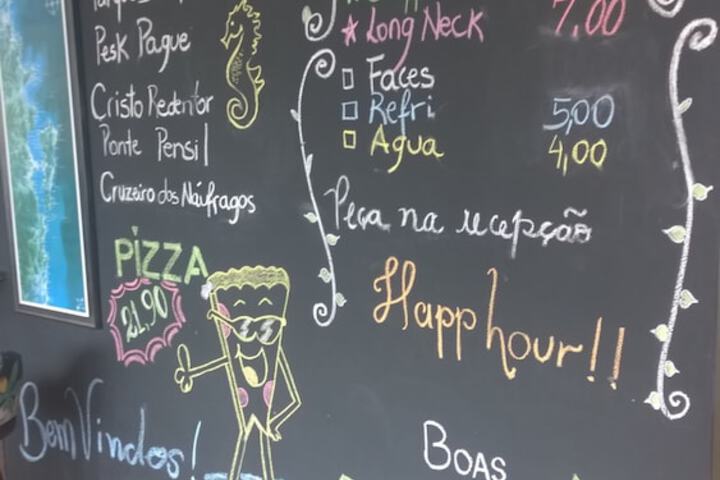 Pesk Pague
Cristo Redentor
Ponte Pensil
Cruzeiro dos Náufragos
PiZZA
21,90
Bem Vindos!
Long Neck 7,00
Faces
Refri 5,00
Agua 4,00
Peça na recepção
Happ hour!!
BOAS